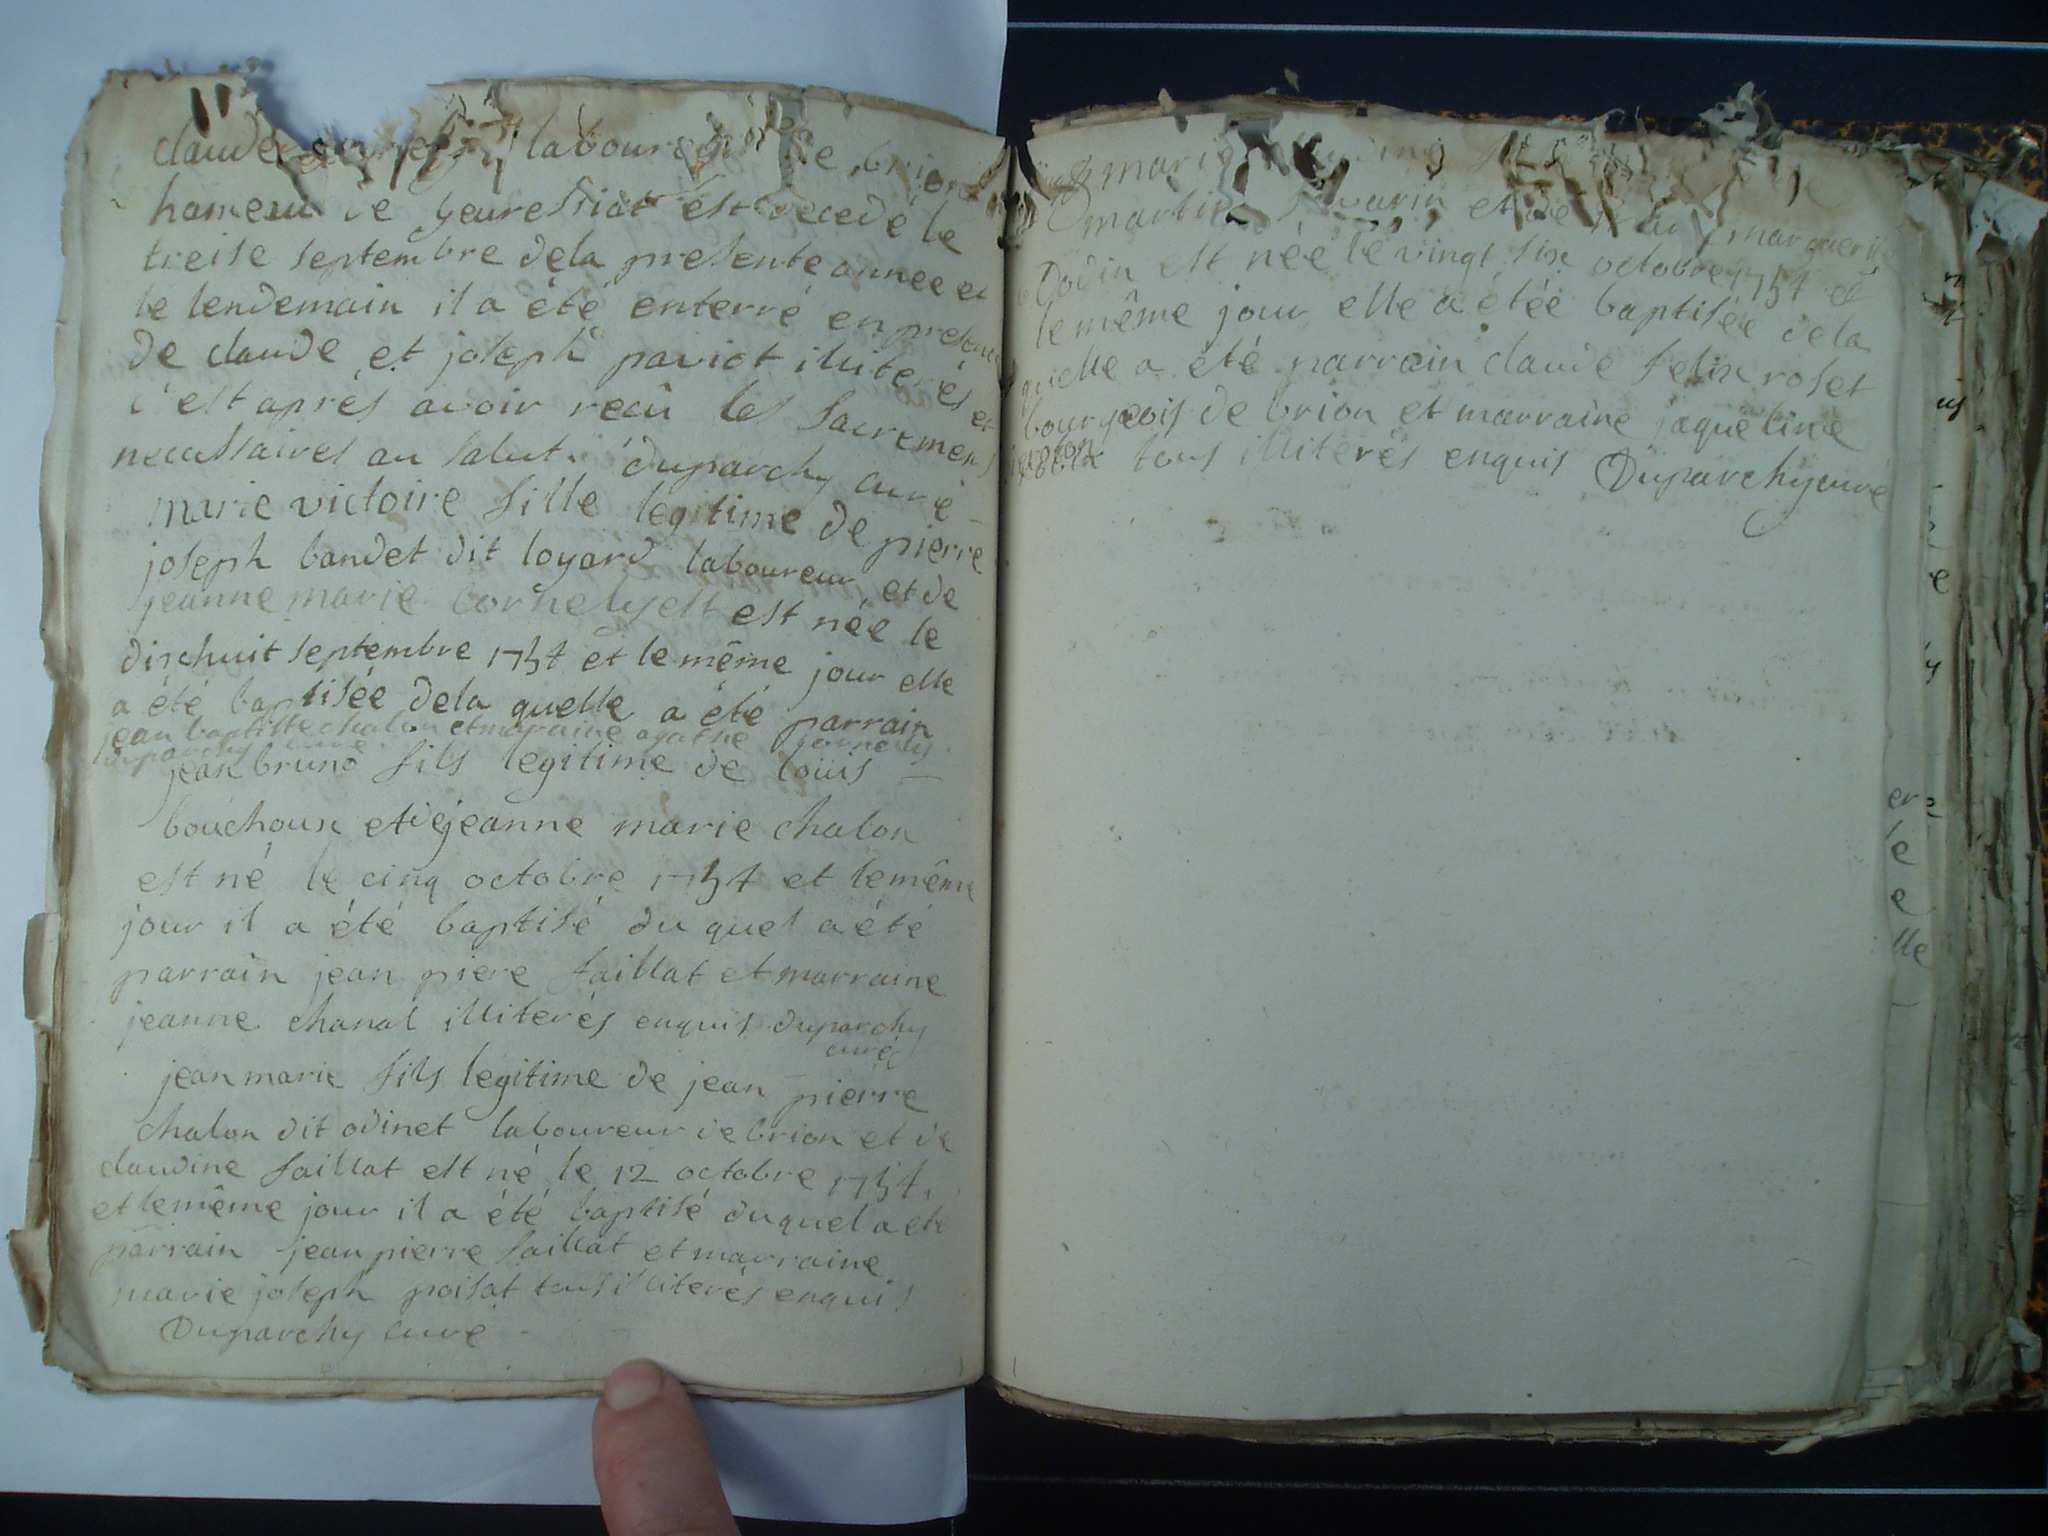 claude laboureur de brion
hameau de geuressiat est decedé le
treise septembre dela presente annee et
le lendemain il a été enterré en presence
de claude et joseph paviot illiterés et
c'est aprés avoir recû les sacremens
necessaires au salut. duparchy curé
marie victoire fille legitime de pierre
joseph bandet dit loyard laboureur et de
jeanne marie est née le
dixhuit septembre 1754 et le même jour elle
a été baptisée dela quelle a été parrain
jean baptiste chalon et maraine agathe
duparchy curé
jean bruno fils legitime de loüis
bouchoux et de jeanne marie chalon
est né le cinq octobre 1754 et le même
jour il a été baptisé du quel a été
parrain jean piere faillat et marraine
jeanne chanal illiterés enquis duparchy
curé
jean marie fils legitime de jean pierre
chalon dit odinet laboureur de brion et de
claudine faillat est né le 12 octobre 1754.
et le même jour il a été baptisé duquel a été
parrain jean pierre faillat et marraine
marie joseph poisat tous illiterés enquis
Duparchy curé
marie
marguerite
Dodin est née le vingt six octobre 1754 et
le même jour elle a étée baptisée dela
quelle a été parrain claude felix roset
bourgeois de brion et marraine jaqueline
tous illiterés enquis Duparchy curé